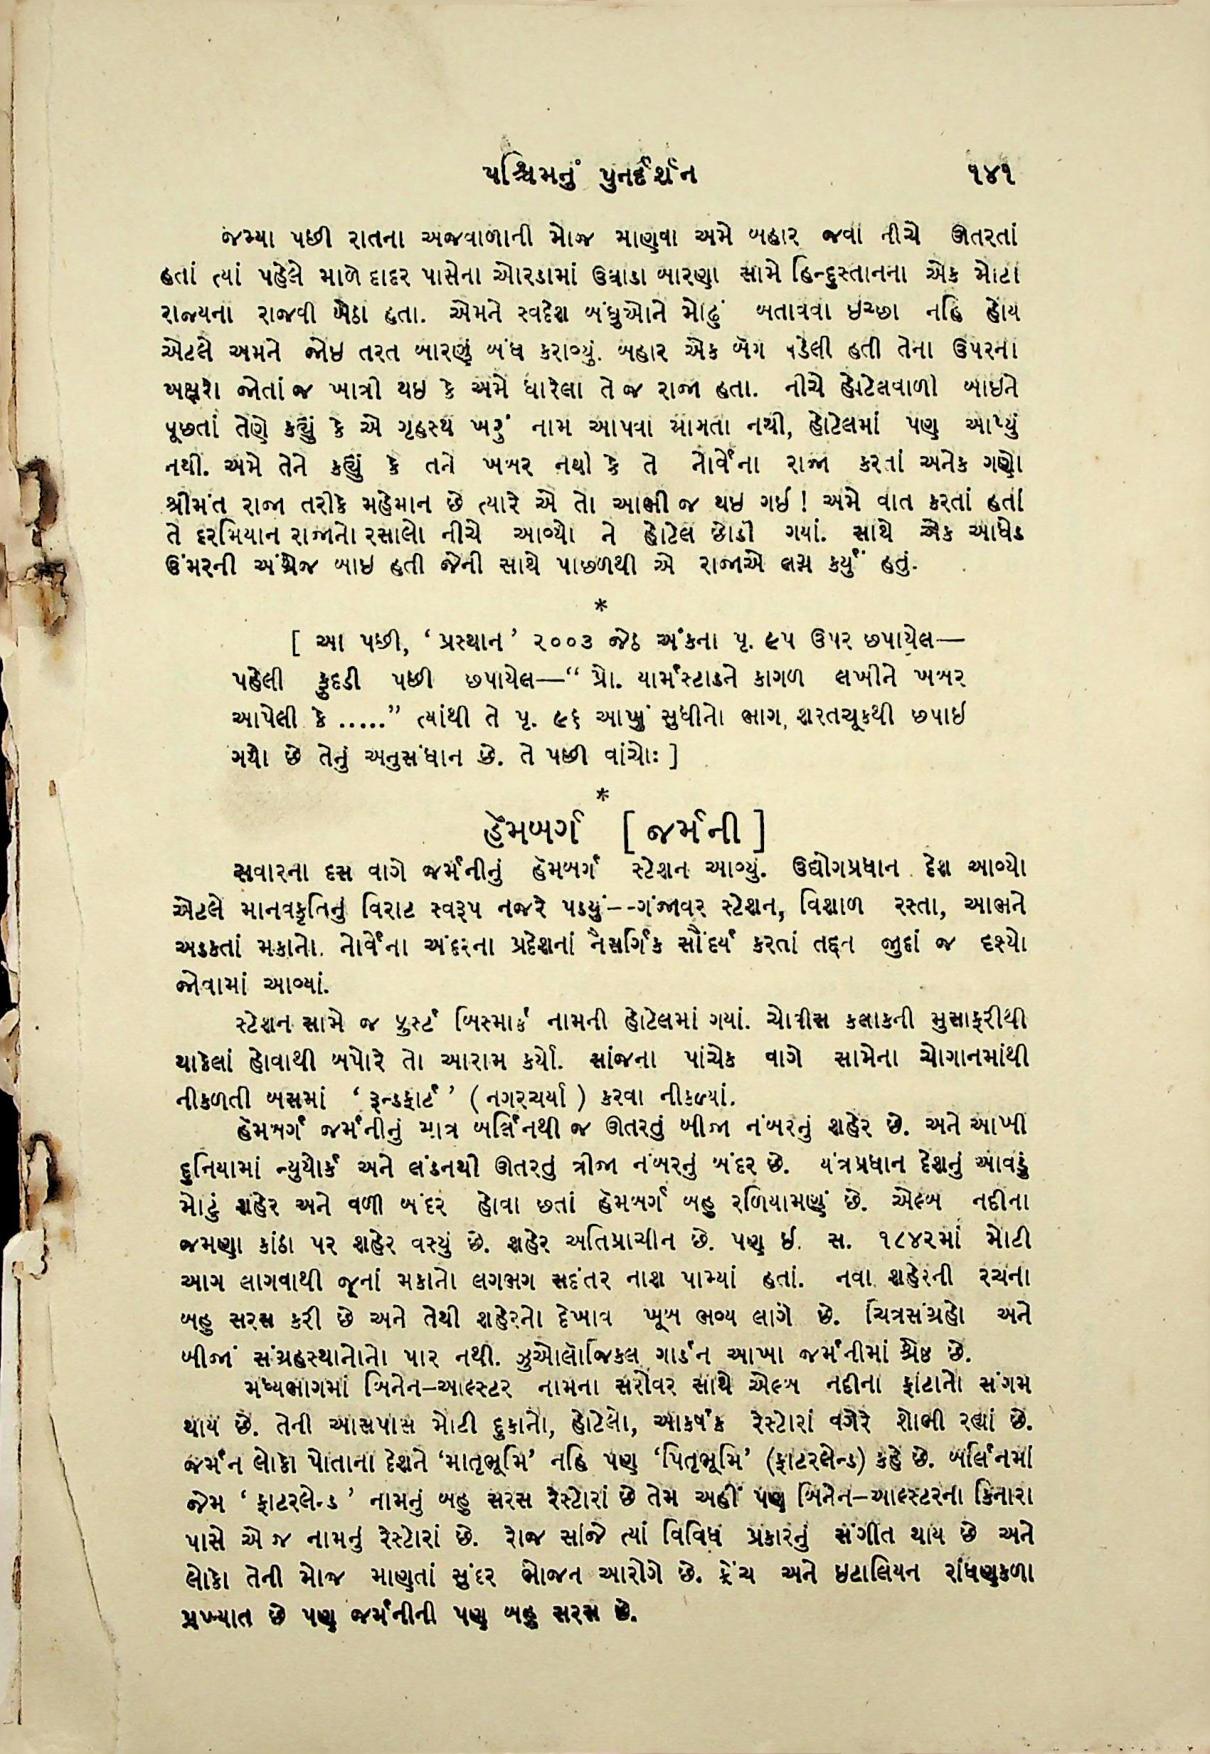 પશ્ચિમનું પુનર્દર્શન ૧૪૧
જમ્યા પછી રાતના અજવાળાની મોજ માણવા અમે બહાર જવા નીચે ઊતરતાં
હતાં ત્યાં પહેલે માળે દાદર પાસેના ઓરડામાં ઉઘાડા બારણા સામે હિન્દુસ્તાનના એક મોટા
રાજ્યના રાજવી બેઠા હતા. એમને સ્વદેશ બંધુઓને મોઢું બતાવવા ઇચ્છા નહિ હોય
એટલે અમને જોઇ તરત બારણું બંધ કરાવ્યું. બહાર એક બૅગ પડેલી હતી તેના ઉપરના
અક્ષરો જોતાં જ ખાત્રી થઇ કે અમે ધારેલા તે જ રાજા હતા. નીચે હોટેલવાળી બાઇને
પૂછતાં તેણે કહ્યું કે એ ગૃહસ્થ ખરું નામ આપવા માગતા નથી, હોટેલમાં પણ આપ્યું
નથી. અમે તેને કહ્યું કે તને ખબર નથી કે તે નોર્વેના રાજા કરતાં અનેક ગણો
શ્રીમંત રાજા તારીકે મહેમાન છે ત્યારે એ તો આભી જ થઇ ગઈ! અમે વાત કરતાં હતાં
તે દરમિયાન રાજાનો રસાલો નીચે આવ્યો ને હોટેલ છોડી ગયાં. સાથે એક આધેડ
ઉંમરની અંગ્રેજ બાઇ હતી જેની સાથે પાછળથી એ રાજાએ લગ્ન કર્યું હતું.
*
[ આ પછી, ‘પ્રસ્થાન’ ૨૦૦૩ જેઠ અંકના પૃ. ૯૫ ઉપર છપાયેલ—
પહેલી ફુદડી પછી છપાયેલ—“ પ્રો. યાર્મસ્ટાડને કાગળ લખીને ખબર
આપેલી કે .....” ત્યાંથી તે પૃ. ૯૬ આખું સુધીનો ભાગ, શરતચૂકથી છપાઇ
ગયો છે તેનું અનુસંધાન છે. તે પછી વાંચોઃ ]
*
હૅમબર્ગ [ જર્મની ]
સવારના દસ વાગે જર્મનીનું હૅમબર્ગ સ્ટેશન આવ્યું. ઉદ્યોગપ્રધાન દેશ આવ્યો
એટલે માનવકૃતિનું વિરાટ સ્વરૂપ નજરે પડ્યું--ગંજાવર સ્ટેશન, વિશાળ રસ્તા, આભને
અડકતાં મકાનો. નોર્વેના અંદરના પ્રદેશનાં નૈસર્ગિક સૌંદર્ય કરતાં તદ્દન જુદાં જ દૃશ્યો
જોવામાં આવ્યાં.
સ્ટેશન સામે જ ફુર્સ્ટ બિસ્માર્ક નામની હોટેલમાં ગયાં. ચોવીસ કલાકની મુસાફરીથી
થાકેલાં હોવાથી બપોરે તો આરામ કર્યો. સાંજના પાંચેક વાગે સામેના ચોગાનમાંથી
નીકળતી બસમાં ‘ રૂન્ડફાર્ટ ’ ( નગરચર્યા ) કરવા નીકળ્યાં.
હૅમબર્ગ જર્મનીનું માત્ર બર્લિનથી જ ઊતરતું બીજા નંબરનું શહેર છે. અને આખી
દુનિયામાં ન્યુયોર્ક અને લંડનથી ઊતરતું ત્રીજા નંબરનું બંદર છે. યંત્રપ્રધાન દેશનું આવડું
મોટું શહેર અને વળી બંદર હોવા છતાં હૅમબર્ગ બહુ રળિયામણું છે. એલ્બ નદીના
જમણા કાંઠા પર શહેર વસ્યું છે. શહેર અતિપ્રાચીન છે. પણ ઇ. સ. ૧૮૪૨માં મોટી
આગ લાગવાથી જૂનાં મકાનો લગભગ સદંતર નાશ પામ્યાં હતાં. નવા શહેરની રચના
બહુ સરસ કરી છે અને તેથી શહેરનો દેખાવ ખૂબ ભવ્ય લાગે છે. ચિત્રસંગ્રહો અને
બીજાં સંગ્રહસ્થાનોનો પાર નથી. ઝુઓલૉજિકલ ગાર્ડન આખા જર્મનીમાં શ્રેષ્ઠ છે.
મધ્યભાગમાં બિનેન-આલ્સ્ટર નામના સરોવર સાથે એલ્બ નદીના ફાંટાનો સંગમ
થાય છે. તેની આસપાસ મોટી દુકાનો, હોટેલો, આકર્ષક રેસ્ટોરાં વગેરે શોભી રહ્યાં છે.
જર્મન લોકો પોતાના દેશને ‘માતૃભૂમિ’ નહિ પણ ‘પિતૃભૂમિ’ (ફાટરલેન્ડ) કહે છે. બર્લિનમાં
જેમ ‘ ફાટરલેન્ડ ’ નામનું બહુ સરસ રેસ્ટોરાં છે તેમ અહીં પણ બિનેન-આલ્સ્ટરના કિનારા
પાસે એ જ નામનું રેસ્ટોરાં છે. રોજ સાંજે ત્યાં વિવિધ પ્રકારનું સંગીત થાય છે અને
લોકો તેની મોજ માણતાં સુંદર ભોજન આરોગે છે. ફ્રેંચ અને ઇટાલિયન રાંધણકળા
પ્રખ્યાત છે પણ જર્મનીની પણ બહુ સરસ છે.